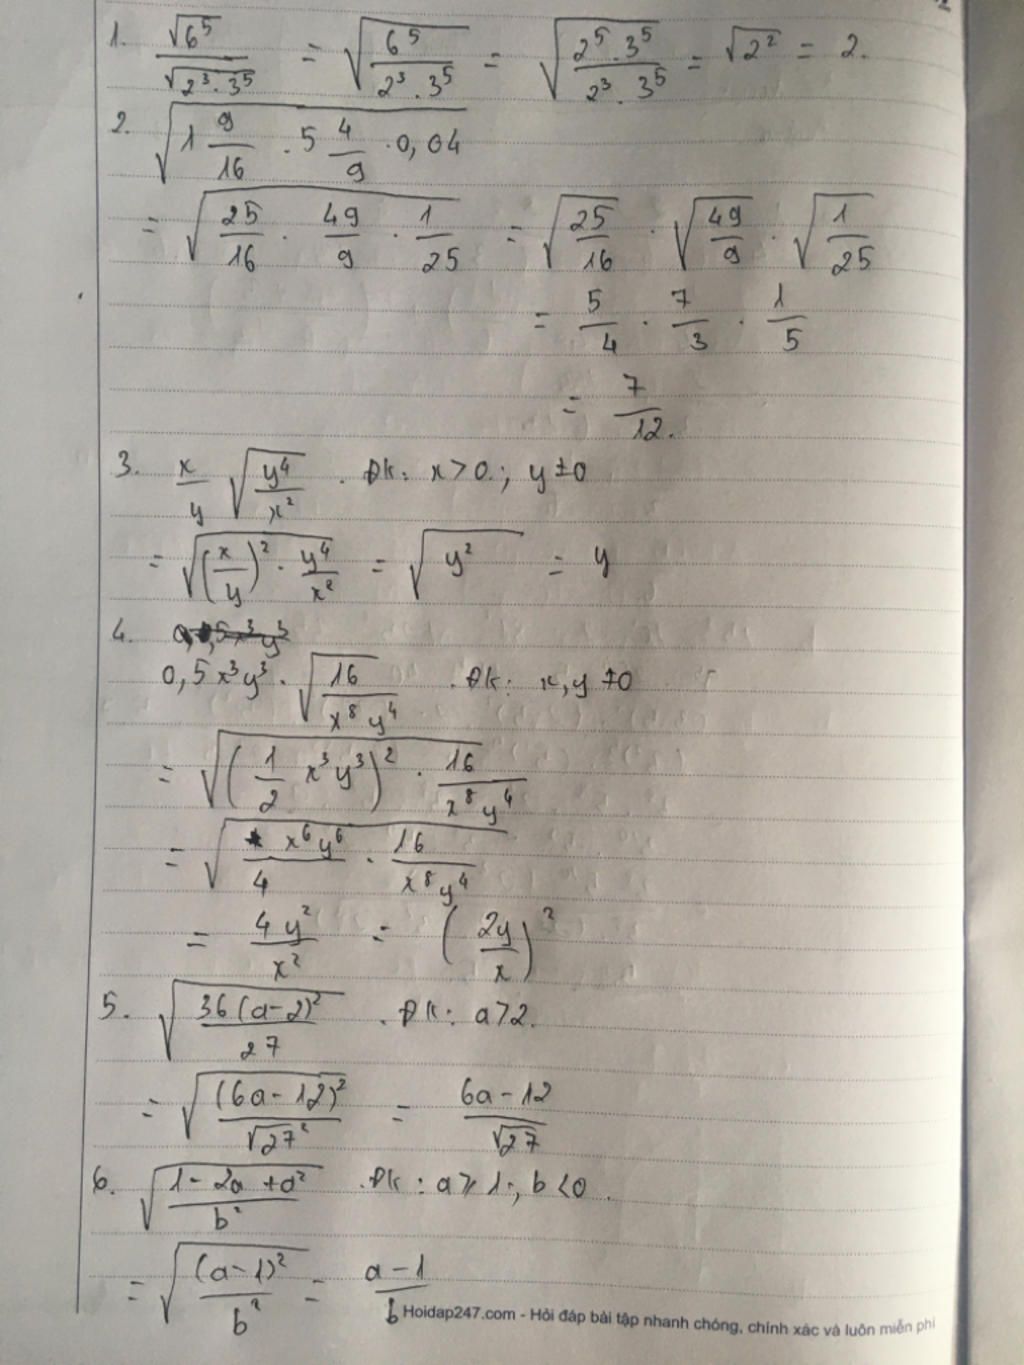 1. √6⁵ / √(2³ . 3⁵) = √(6⁵ / (2³ . 3⁵)) = √((2⁵ . 3⁵) / (2³ . 3⁵)) = √2² = 2.
2. √(1 9/16 . 5 4/9 . 0,04)
= √(25/16 . 49/9 . 1/25) = √(25/16) . √(49/9) . √(1/25)
= 5/4 . 7/3 . 1/5
= 7/12.
3. x/y √(y⁴/x²) . Đk: x > 0 ; y ≠ 0
= √((x/y)² . y⁴/x²) = √(y²) = y
4.
0,5x³y³ . √(16 / (x⁸y⁴)) . Đk: x, y ≠ 0
= √((1/2 x³y³)² . 16 / (x⁸y⁴))
= √(x⁶y⁶ / 4 . 16 / (x⁸y⁴))
= 4y²/x² = (2y/x)²
5. √(36(a-2)² / 27) . Đk: a > 2.
= √((6a-12)² / √27²) = (6a-12) / √27
6. √((1-2a+a²) / b²) . Đk: a ≥ 1 ; b < 0.
= √((a-1)² / b²) = (a-1) / b
Hoidap247.com - Hỏi đáp bài tập nhanh chóng, chính xác và luôn miễn phí